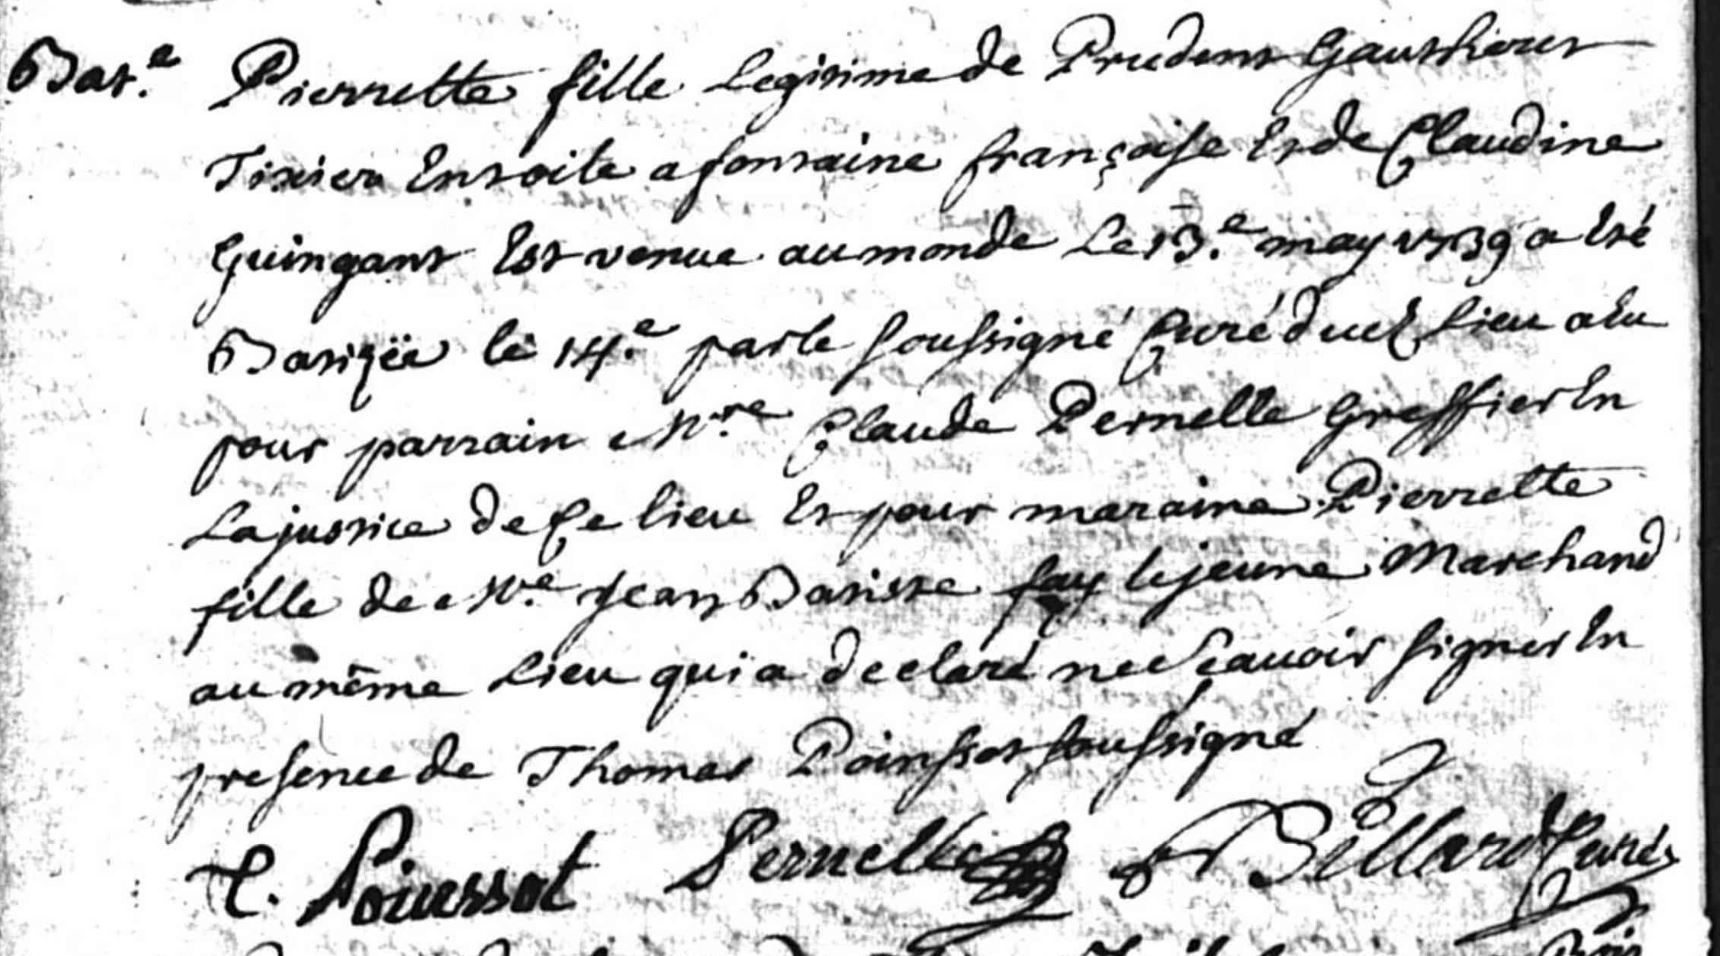 Bat.e Pierrette fille Legitime de Prudent Gauthierot
Tixier En toile a fontaine françoise Et de Claudine
Guingant Est venue au monde Le 13.e may 1739 a Eté
Batizée le 14.e par le soussigné Curé dud Lieu a Eu
pour parrain Mre Claude Pernelle Greffier En
La justice de Ce lieu Et pour maraine Pierrette
fille de Me Jean Batiste fay le jeune Marchand
au même Lieu qui a declaré ne sçauoir signer En
presence de Thomas Poinssot soussigné
T. Poinssot Pernelle Billard Curé